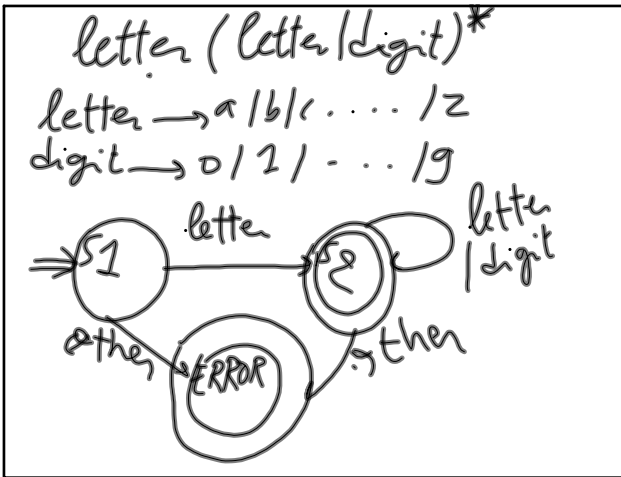 letter (letter/digit)*
letter → a/b/c . . . . /z
digit → 0/1/ - . . /9
letter
S1
S2
letter
/digit
other
ERROR
other